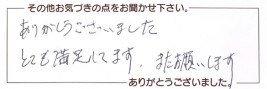 その他お気づきの点をお聞かせ下さい。
ありがとうございました
とても満足してます。またお願いします
ありがとうございました。